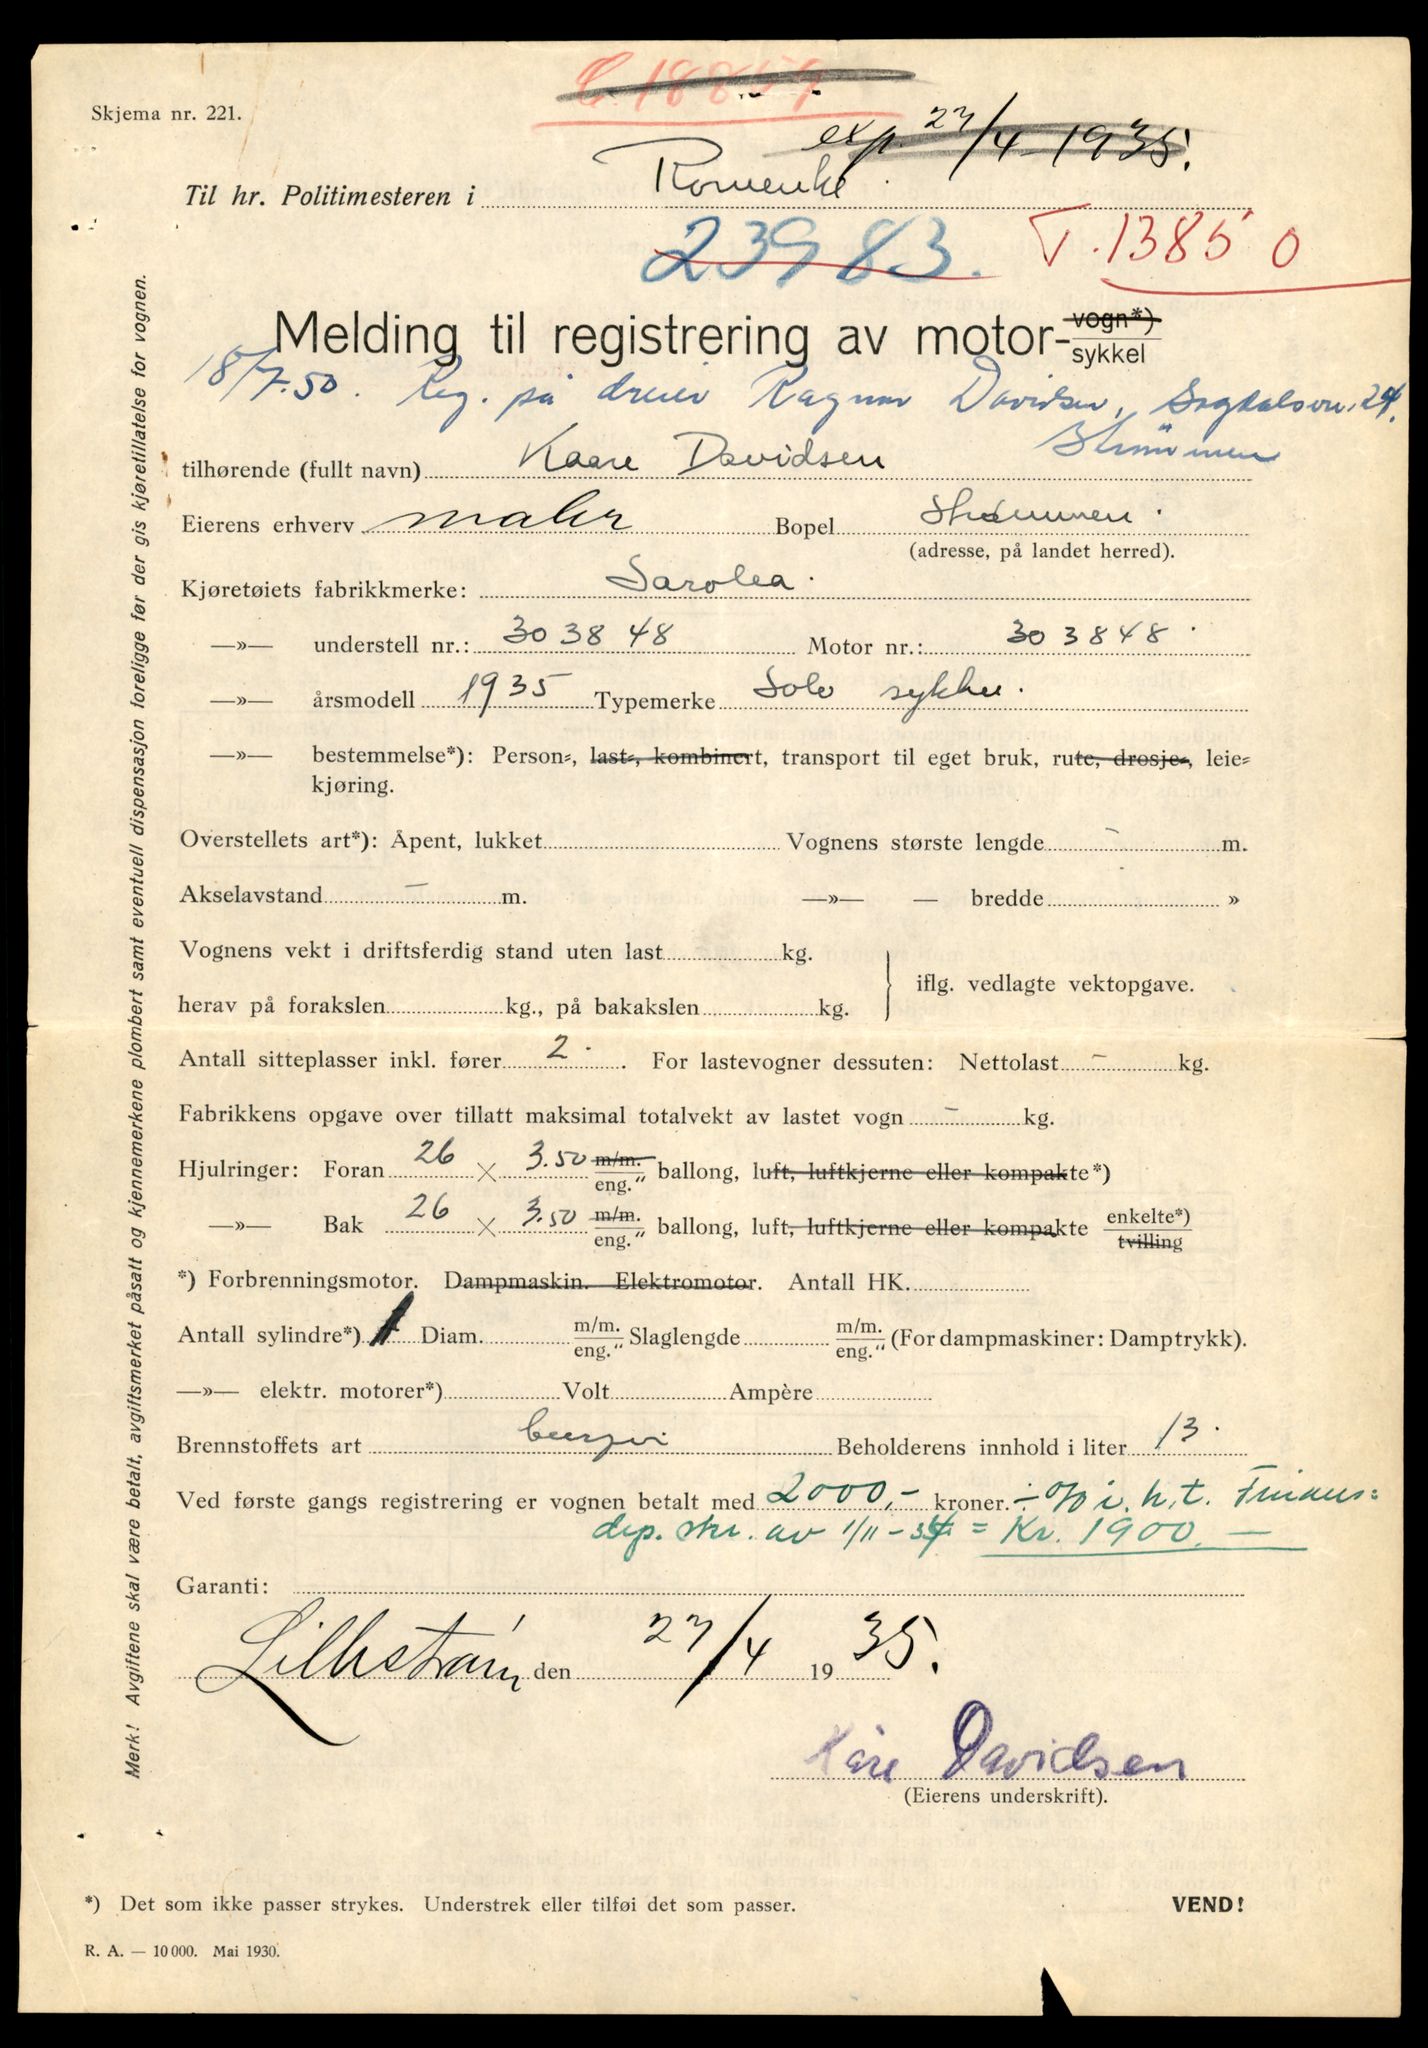 C. 18859
Skjema nr. 221.
exp. 27/4 1935.
Til hr. Politimesteren i Romerike.
23983. T. 13850
Melding til registrering av motor-vogn*)
sykkel
18/7.50. Reg. på dreier Ragnar Davidsen, Sagdalsvn. 24.
Strømmen
tilhørende (fullt navn) Kaare Davidsen
Eierens erhverv maler Bopel Strømmen.
(adresse, på landet herred).
Kjøretøiets fabrikkmerke: Sarolea.
—»— understell nr.: 303848 Motor nr.: 303848.
—»— årsmodell 1935 Typemerke Solo sykkel.
—»— bestemmelse*): Person-, last-, kombinert, transport til eget bruk, rute, drosje-, leie-
kjøring.
Overstellets art*): Åpent, lukket Vognens største lengde – m.
Akselavstand – m. —»— — bredde »
Vognens vekt i driftsferdig stand uten last kg.
iflg. vedlagte vektopgave.
herav på forakslen kg., på bakakslen kg.
Antall sitteplasser inkl. fører 2. For lastevogner dessuten: Nettolast – kg.
Fabrikkens opgave over tillatt maksimal totalvekt av lastet vogn – kg.
Hjulringer: Foran 26 × 3.50 m/m. eng." ballong, luft, luftkjerne eller kompakte*)
—»— Bak 26 × 3.50 m/m. eng." ballong, luft, luftkjerne eller kompakte enkelte*) tvilling
*) Forbrenningsmotor. Dampmaskin. Elektromotor. Antall HK.
Antall sylindre*) 1 Diam. m/m. eng." Slaglengde m/m. eng." (For dampmaskiner: Damptrykk).
—»— elektr. motorer*) Volt Ampère
Brennstoffets art benzin Beholderens innhold i liter 13.
Ved første gangs registrering er vognen betalt med 2000,- kroner. i. h. t. Finans=
dep. skr. av 1/11-34 = Kr. 1900.—
Garanti:
Lillestrøm den 27/4 1935.
Kåre Davidsen
(Eierens underskrift).
*) Det som ikke passer strykes. Understrek eller tilføi det som passer. VEND!
R. A. — 10 000. Mai 1930.
Merk! Avgiftene skal være betalt, avgiftsmerket påsatt og kjennemerkene plombert samt eventuell dispensasjon foreligge før der gis kjøretillatelse for vognen.